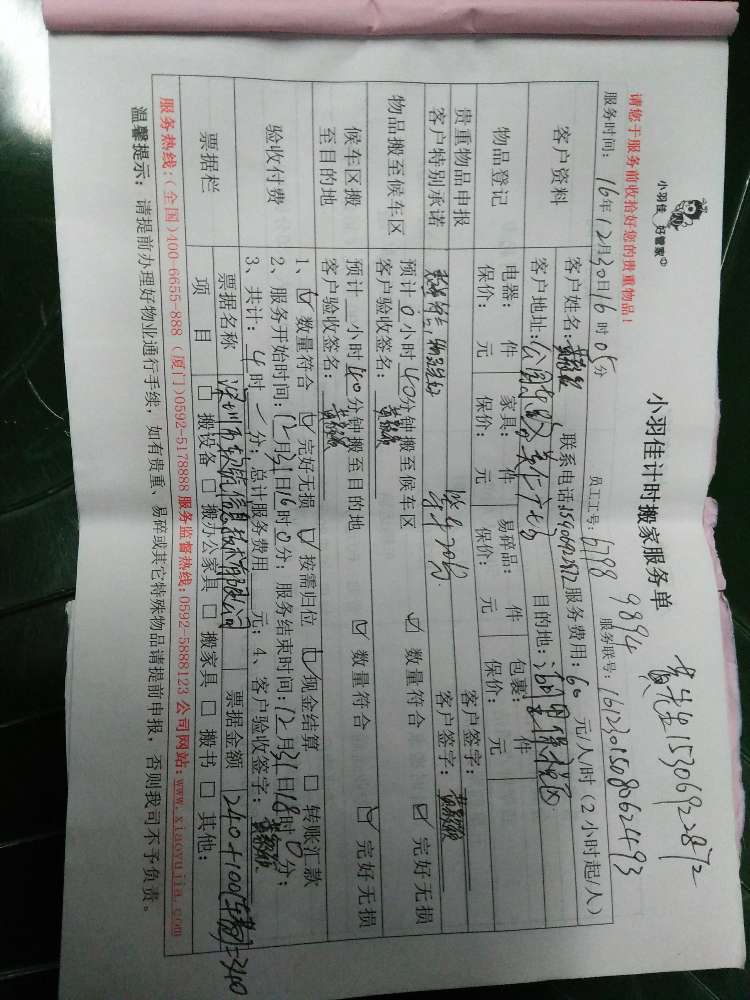 请您于服务前收拾好您的贵重物品！
小羽佳 好管家
小羽佳计时搬家服务单
服务时间：16年12月30日16时05分 员工工号：6798 9894 服务联号：
客户资料 客户姓名： 联系电话： 服务费用：60元/人/时（2小时起/人）
客户地址： 目的地：
物品登记 电器： 件 家具： 件 易碎品： 件 包裹： 件
保价： 元 保价： 元 保价： 元 保价： 元
贵重物品申报 客户签字：
客户特别承诺 客户签字：
物品搬至候车区 预计0小时40分钟搬至候车区 ☑ 数量符合 ☑ 完好无损
客户验收签名：
候车区搬至目的地 预计 小时40分钟搬至目的地 ☑ 数量符合 ☑ 完好无损
客户验收签名：
验收付费 1、☑ 数量符合 ☑ 完好无损 ☑ 按需归位 ☑ 现金结算 □ 转账汇款
2、服务开始时间：12月31日16时0分；服务结束时间：12月31日18时0分；
3、共计：4时 分；总计服务费用 元；4、客户验收签字：
票据栏 票据名称 票据金额 240+100(车费)=340
项目 □ 搬设备 □ 搬办公家具 □ 搬家具 □ 搬书 □ 其他：
服务热线：(全国)400-6655-888 (厦门)0592-5178888 服务监督热线：0592-5888123 公司网站：www.xiaoyujia.com
温馨提示：请提前办理好物业通行手续，如有贵重、易碎或其它特殊物品请提前申报，否则我司不予负责。